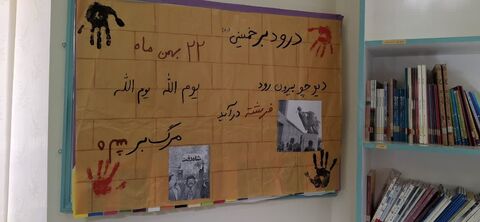 درود بر خمینی (ره)
۲۲ بهمن ماه
دیو چو بیرون رود
یوم الله یوم الله
فرشته درآید
مرگ بر شاه
شاه رفت